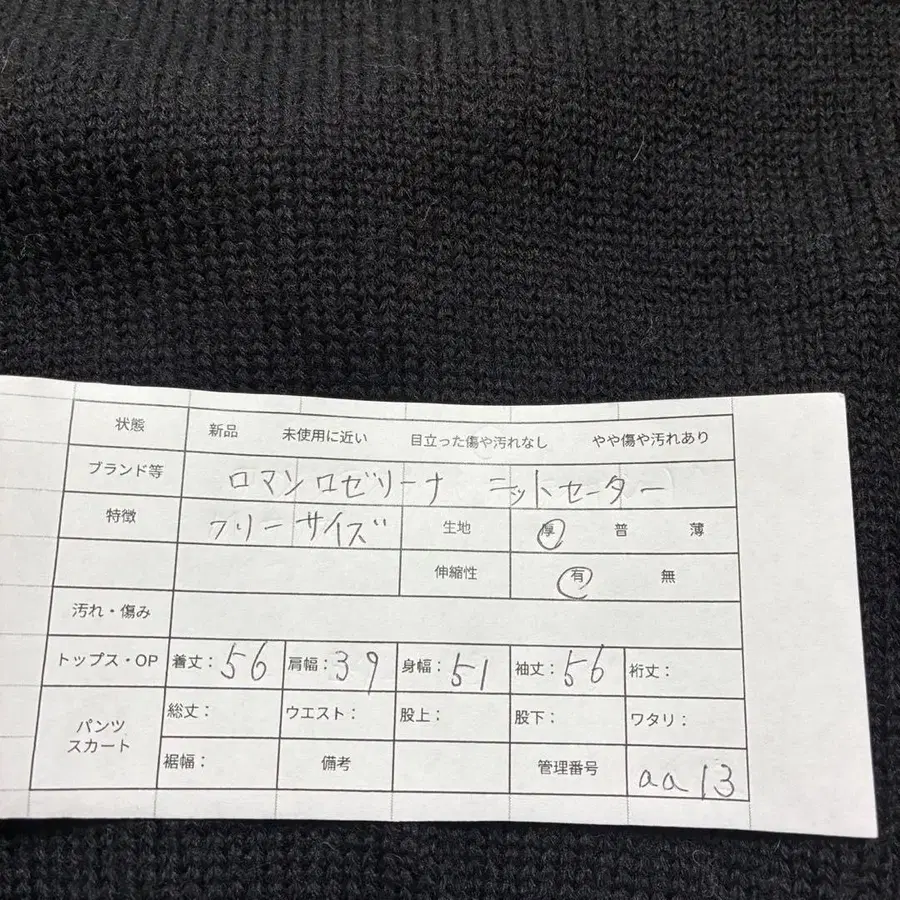 状態 新品 未使用に近い 目立った傷や汚れなし やや傷や汚れあり
ブランド等 ロマンロゼリーナ ニットセーター
特徴 フリーサイズ 生地 厚 普 薄
伸縮性 有 無
汚れ・傷み
トップス・OP 着丈：56 肩幅：39 身幅：51 袖丈：56 裄丈：
パンツ スカート 総丈： ウエスト： 股上： 股下： ワタリ：
裾幅： 備考 管理番号 aa13